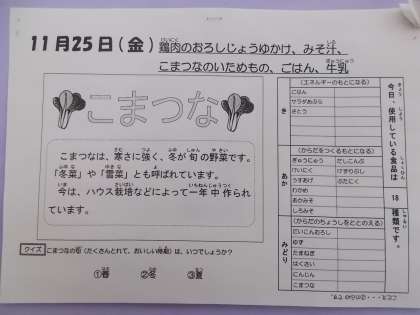 11月25日（金）鶏肉のおろしじょうゆかけ、みそ汁、
こまつなのいためもの、ごはん、牛乳
こまつな
こまつなは、寒さに強く、冬が旬の野菜です。
「冬菜」や「雪菜」とも呼ばれています。
今は、ハウス栽培などによって一年中作られ
ています。
クイズ こまつなの旬（たくさんとれて、おいしい時期）は、いつでしょうか？
①春 ②冬 ③夏
今日、使用している食品は
18
種類です。
き
（エネルギーのもとになる）
ごはん
サラダあぶら
さとう
あか
（からだをつくるもとになる）
ぎゅうにゅう だしこんぶ
けいにく けずりぶし
うすあげ ぶたにく
わかめ
あかみそ
しろみそ
みどり
（からだのちょうしをととのえる）
だいこんおろし
ゆず
たまねぎ
はくさい
にんじん
こまつな